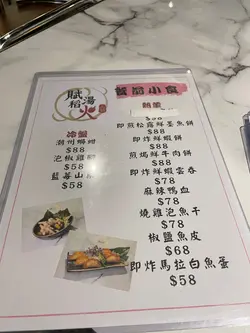 賦湯
稻火
餐前小食
冷盤
潮州蠔仔
$88
泡椒雞腳
$58
藍莓山藥
$58
熱葷
$58
即煎松露鮮墨魚餅
$88
即炸鮮蝦餅
$88
煎焗鮮牛肉餅
$88
即炸鮮蝦雲吞
$78
麻辣鴨血
$78
燒雞泡魚干
$78
椒鹽魚皮
$68
即炸馬拉白魚蛋
$58